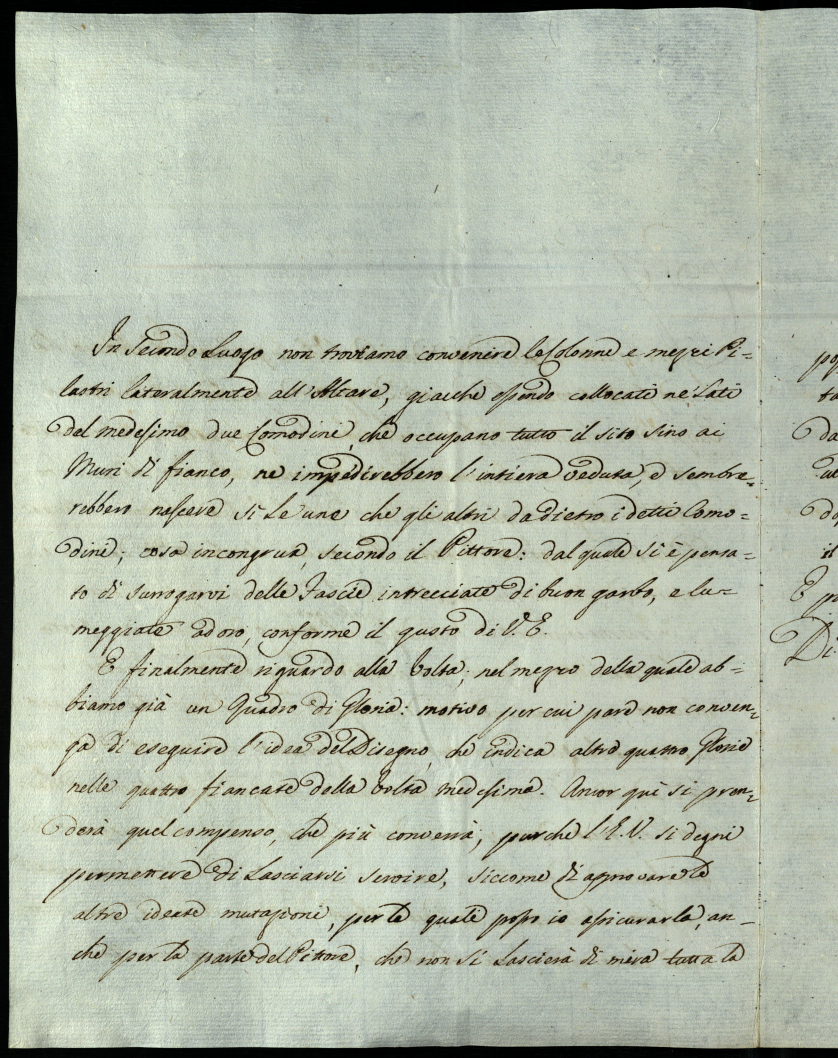 In secondo luogo non troviamo convenire le Colonne e mezzi Pi=
lastri lateralmente all'Altare, giacchè essendo collocati ne' Lati
del medesimo due Comodini, che occupano tutto il sito sino ai
Muri di fianco, ne impedirebbero l'intiera veduta, e sembre=
rebbero nascere sì le une che gli altri da dietro i detti Como=
dini; cosa incongrua, secondo il Pittore: dal quale si è pensa=
to di surrogarvi delle Fascie intrecciate di buon garbo, e lu=
meggiate ad oro, conforme il gusto di V. E.
E finalmente riguardo alla Volta; nel mezzo della quale ab=
biamo già un Quadro di Gloria: motivo per cui pare non conven=
ga di eseguire l'idea del Disegno, che indica altre quattro Glorie
nelle quattro fiancate della Volta medesima. Ancor quì si pren=
derà quel compenso, che più converrà, purchè l'E.V. si degni
permettere di Lasciarvi servire, siccome di approvare le
altre ideate mutazioni, per le quali posso io assicurarla, an=
che per la parte del Pittore, che non si Lascierà di mira tutta la